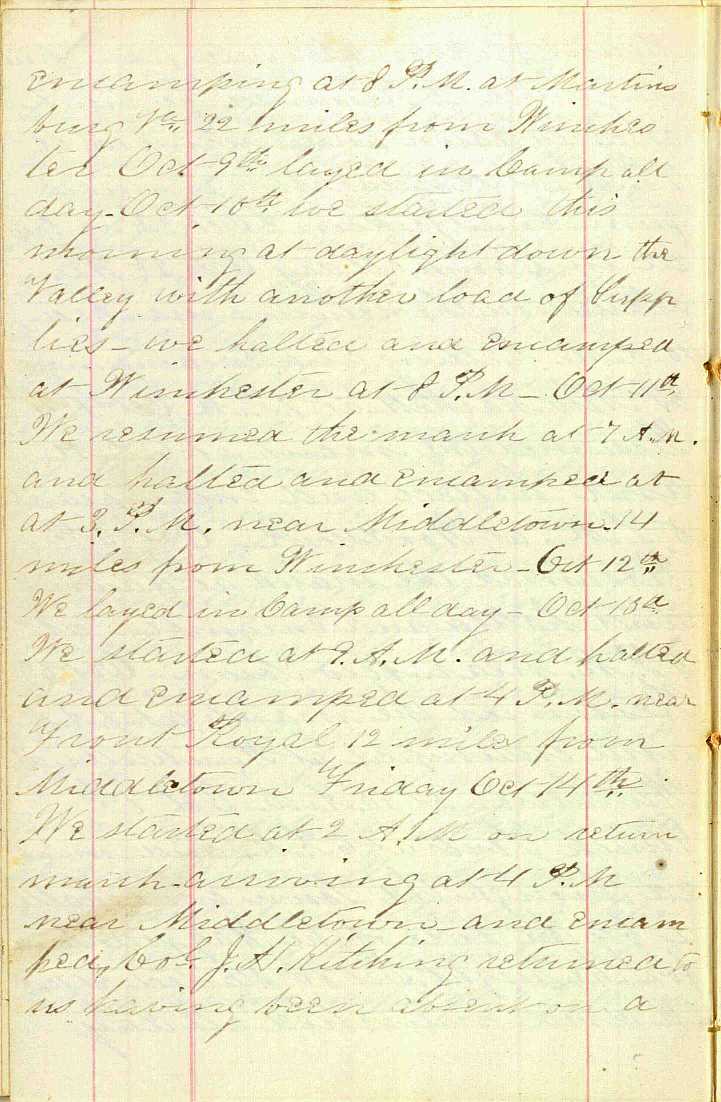 encamping at 8 P.M. at Martins
burg Va, 22 miles from Winches
ter Oct 9th layed in Camp all
day - Oct 10th We started this
morning at daylight down the
Valley with another load of Supp
lies - we halted and encamped
at Winchester at 8 P.M - Oct 11th
We resumed the march at 7 A.M.
and halted and encamped at
at 3. P.M. near Middletown 14
miles from Winchester - Oct 12th
We layed in Camp all day - Oct 13th
We started at 9. A.M. and halted
and encamped at 4 P.M. near
Front Royal 12 miles from
Middletown Friday Oct 14th
We started at 2 A.M on return
march - arriving at 4 P.M
near Middletown - and encam
ped, Col. J.H. Kitching returned to
us having been absent on a